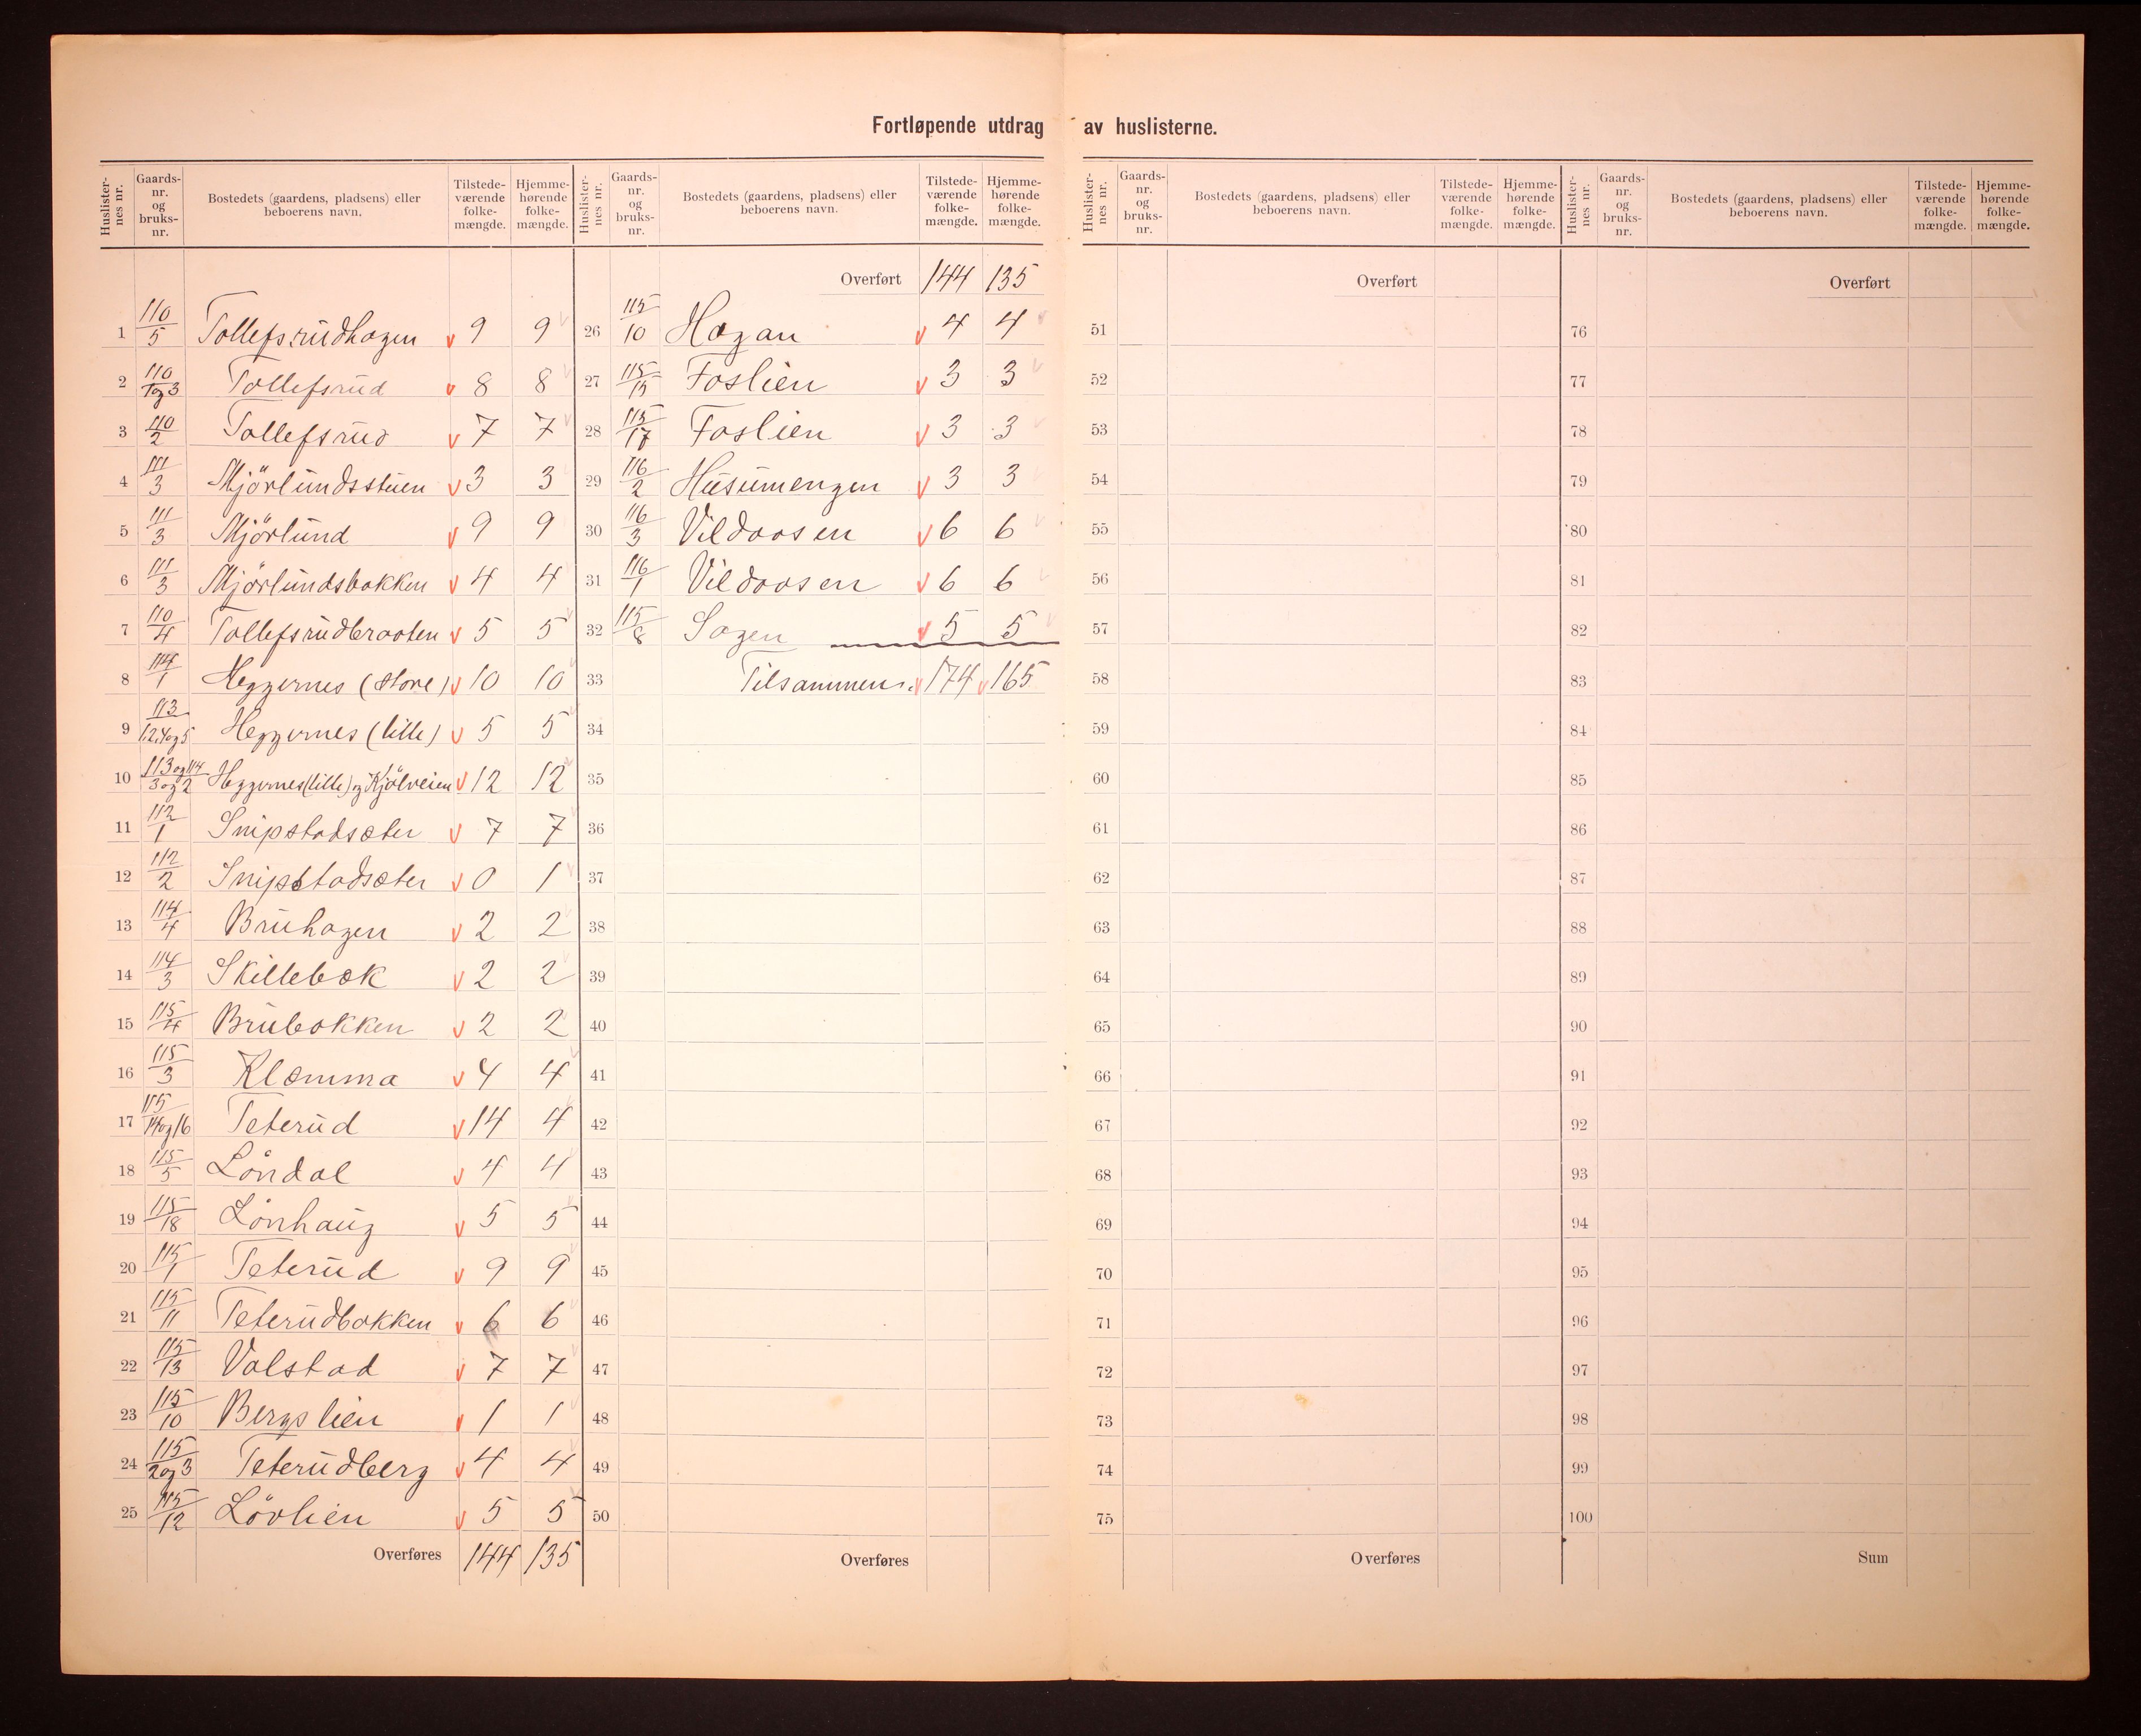 Fortløpende utdrag av huslisterne.
Huslister-nes nr. Gaards-nr. og bruks-nr. Bostedets (gaardens, pladsens) eller beboerens navn. Tilstede-værende folke-mængde. Hjemme-hørende folke-mængde.
1 110/5 Tollefsrudhagen 9 9
2 110/1og3 Tollefsrud 8 8
3 110/2 Tollefsrud 7 7
4 111/3 Mjörlundsstuen 3 3
5 111/3 Mjörlund 9 9
6 111/3 Mjörlundsbakken 4 4
7 110/4 Tollefsrudbraaten 5 5
8 114/1 Heggernes (store) 10 10
9 113/1.2.4og5 Heggernes (lille) 5 5
10 113og114/3og2 Heggernes(lille)og Kjölveien 12 12
11 112/1 Snipstadsæter 7 7
12 112/2 Snipstadsæter 0 1
13 114/4 Bruhagen 2 2
14 114/3 Skillebæk 2 2
15 115/4 Brubakken 2 2
16 115/3 Klæmma 4 4
17 115/14og16 Teterud 14 4
18 115/5 Löndal 4 4
19 115/18 Lönhaug 5 5
20 115/1 Teterud 9 9
21 115/11 Teterudbakken 6 6
22 115/13 Valstad 7 7
23 115/10 Bergslien 1 1
24 115/2og3 Teterudberg 4 4
25 115/12 Lövlien 5 5
Overføres 144 135
Huslister-nes nr. Gaards-nr. og bruks-nr. Bostedets (gaardens, pladsens) eller beboerens navn. Tilstede-værende folke-mængde. Hjemme-hørende folke-mængde.
Overført 144 135
26 115/10 Hagan 4 4
27 115/15 Foslien 3 3
28 115/17 Foslien 3 3
29 116/2 Husumengen 3 3
30 116/3 Vildaasen 6 6
31 116/1 Vildaasen 6 6
32 115/8 Sagen 5 5
33 Tilsammen 174 165
34
35
36
37
38
39
40
41
42
43
44
45
46
47
48
49
50
Overføres
Huslister-nes nr. Gaards-nr. og bruks-nr. Bostedets (gaardens, pladsens) eller beboerens navn. Tilstede-værende folke-mængde. Hjemme-hørende folke-mængde.
Overført
51
52
53
54
55
56
57
58
59
60
61
62
63
64
65
66
67
68
69
70
71
72
73
74
75
Overføres
Huslister-nes nr. Gaards-nr. og bruks-nr. Bostedets (gaardens, pladsens) eller beboerens navn. Tilstede-værende folke-mængde. Hjemme-hørende folke-mængde.
Overført
76
77
78
79
80
81
82
83
84
85
86
87
88
89
90
91
92
93
94
95
96
97
98
99
100
Sum